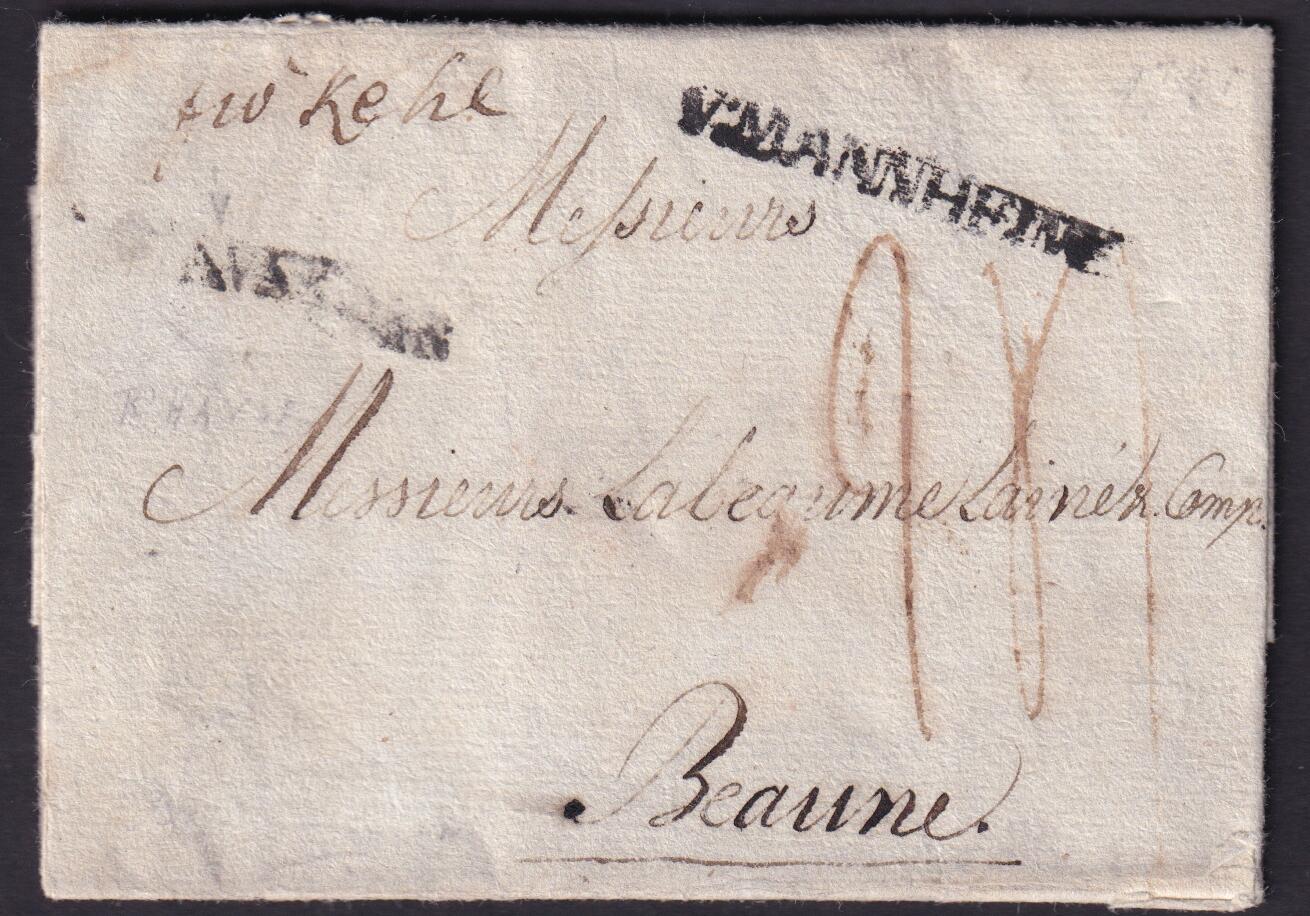 frco Kehl
V.MANNHEIM
Messieurs
Messieurs Labeaume Lainé & Comp.
Beaune.